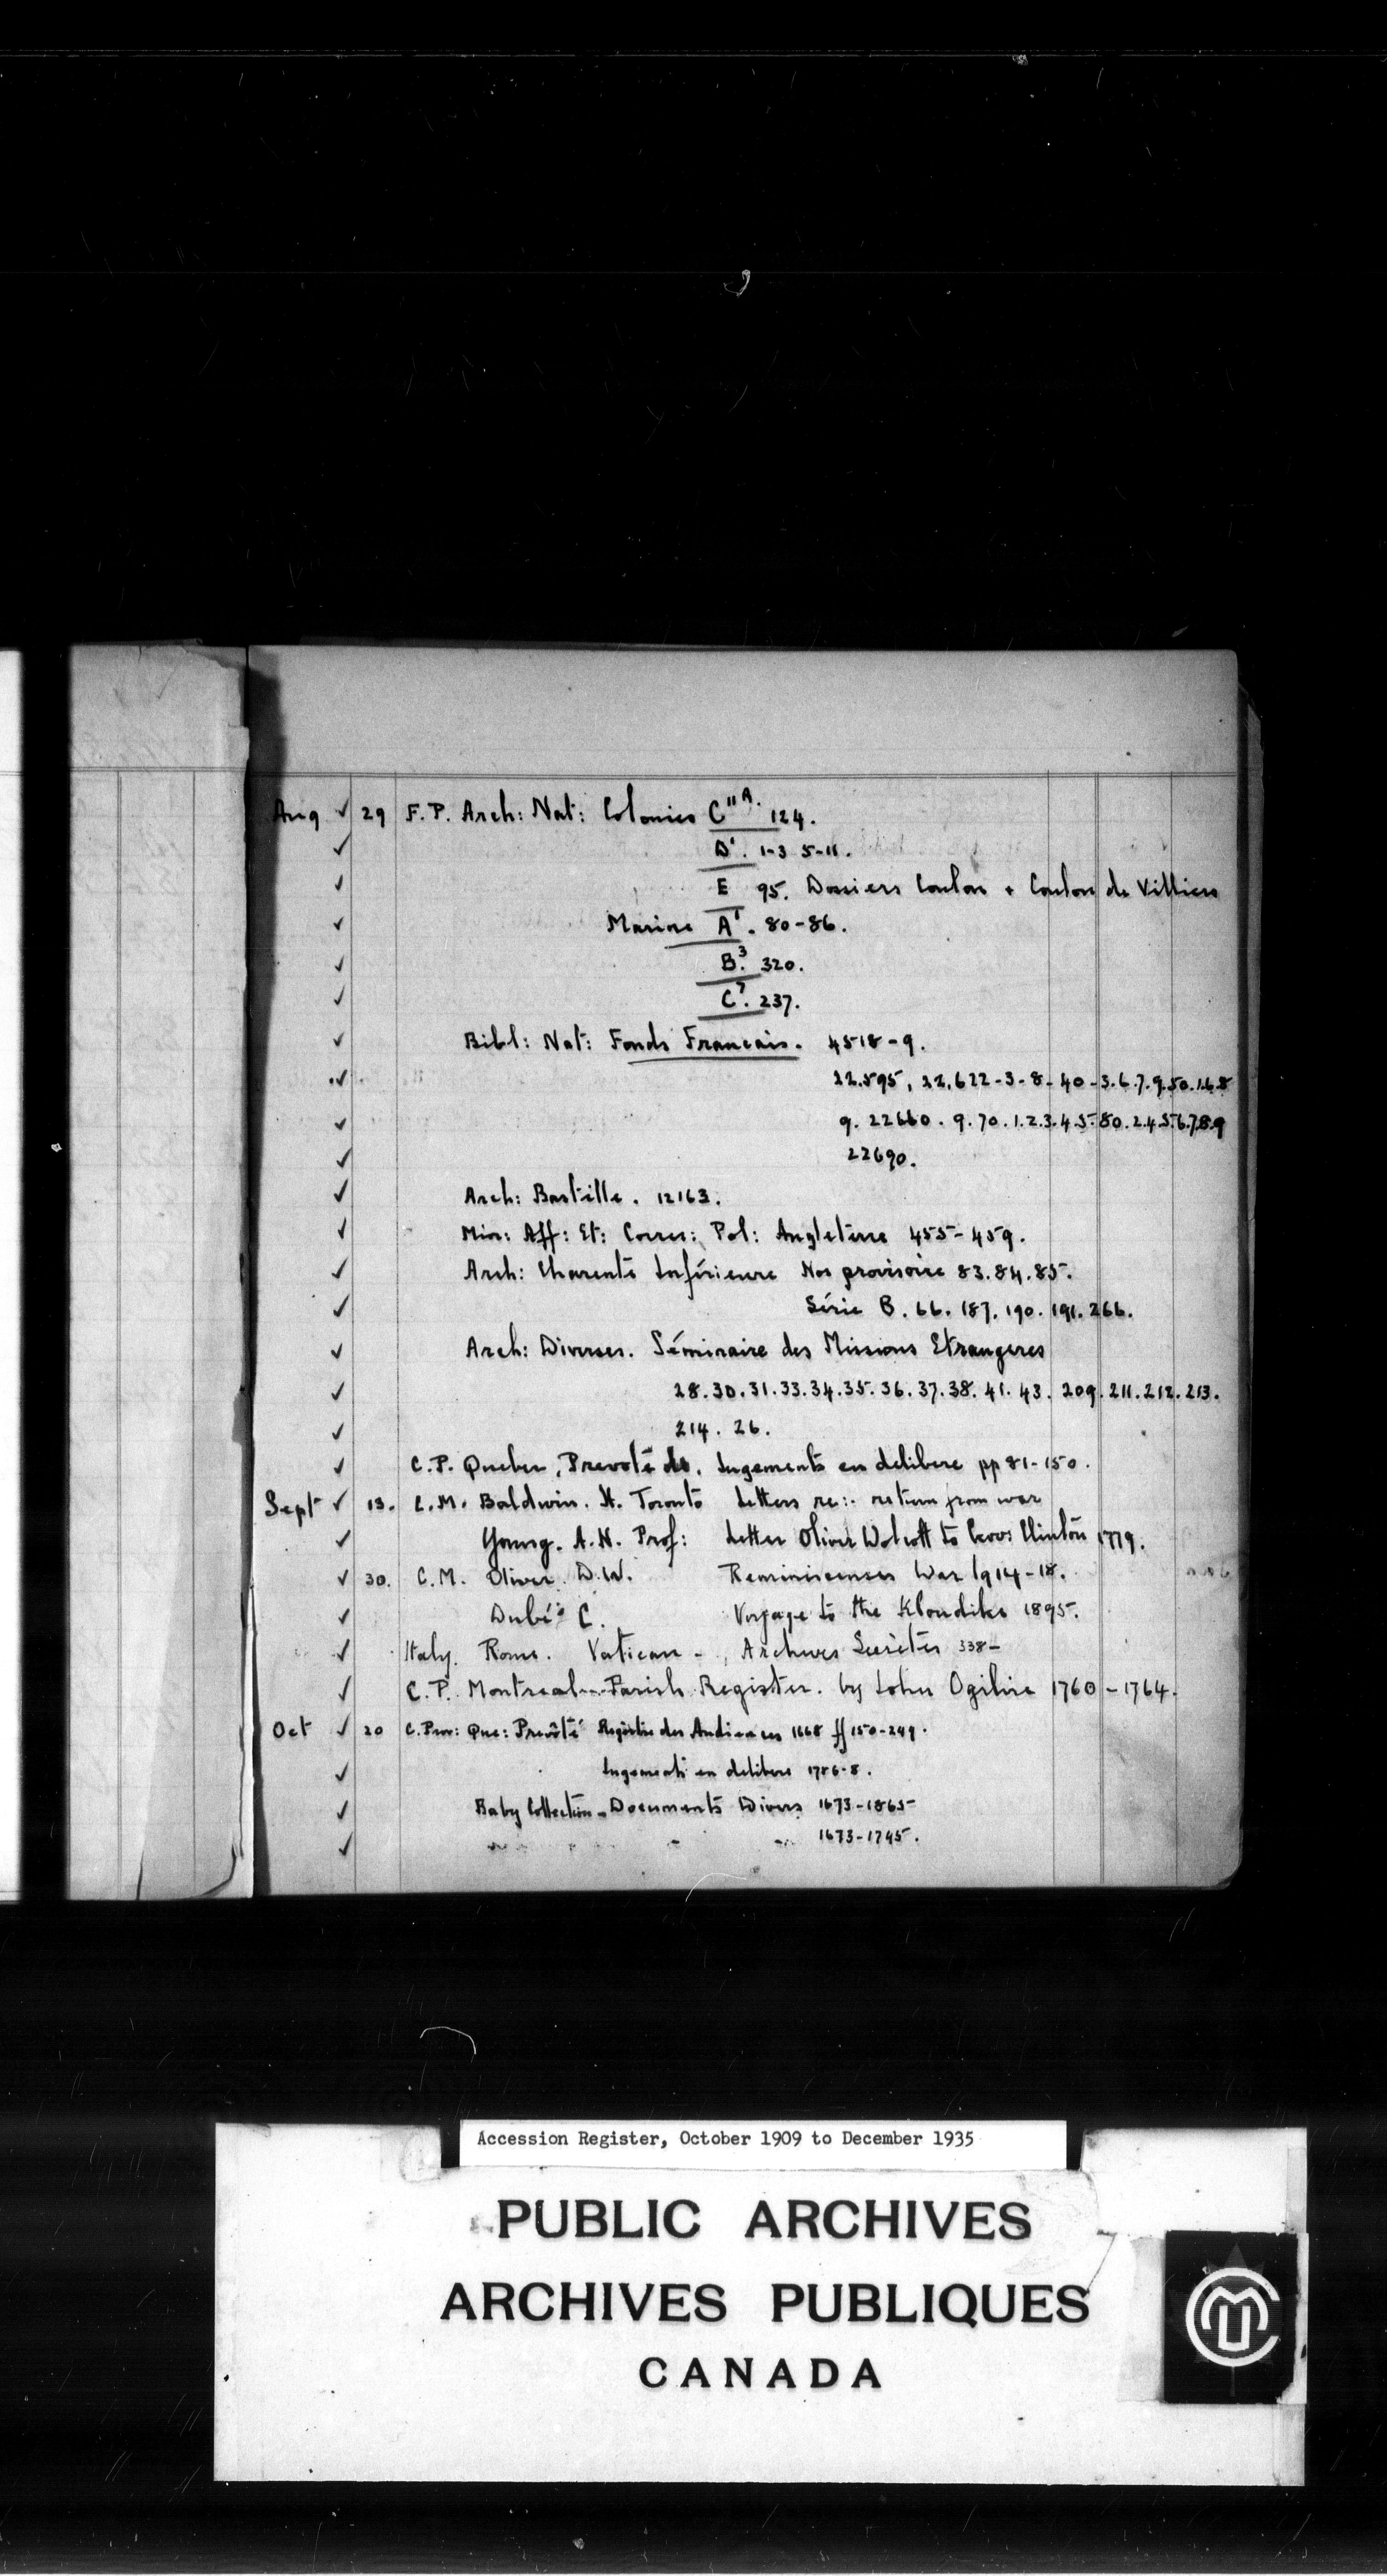 Aug ✓ 29 F.P. Arch: Nat: Colonies C"A. 124.
✓ D'. 1-3 5-11.
✓ E 95. Dossiers Coulon + Coulon de Villiers
✓ Marine A'. 80-86.
✓ B3. 320.
✓ C7. 237.
✓ Bibl: Nat: Fonds Francais. 4518-9.
✓ 22.595, 22,622-3-8-40-3.6.7.9.50.1.6.8
✓ 9. 22660. 9.70.1.2.3.4.5-80.2.4.5.6.7.8.9
✓ 22690.
✓ Arch: Bastille. 12163.
✓ Min: Aff: Et: Corres: Pol: Angleterre 455-459.
✓ Arch: Charente Inférieure Nos provisoire 83.84.85.
✓ Série B. 66. 187. 190. 191. 266.
✓ Arch: Diverses. Séminaire des Missions Etrangeres
✓ 28.30.31.33.34.35.36.37.38.41.43. 209.211.212.213.
✓ 214. 26.
✓ C.P. Quebec, Prevoté de. Jugements en delibere pp 81-150.
Sept ✓ 13. C.M. Baldwin. St. Toronto Letters re:- return from war
✓ Young. A.N. Prof: Letter Oliver Wolcott to Gov: Clinton 1779.
✓ 30. C.M. Oliver D.W. Reminiscences War 1914-18.
✓ Dubé: C. Voyage to the Klondike 1895.
✓ Italy. Rome. Vatican - Archives Secrètes 338-
✓ C.P. Montreal Parish Register. by John Ogilvie 1760-1764.
Oct ✓ 20 C. Prov: Que: Prevôté Registre des Audiences 1668 ff 150-249.
✓ Jugements en delibere 1786-8.
✓ Baby Collection - Documents Divers 1673-1865
✓ 1673-1745.
Accession Register, October 1909 to December 1935
PUBLIC ARCHIVES
ARCHIVES PUBLIQUES
CANADA